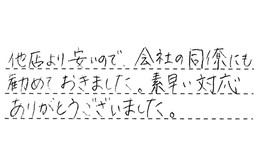 他店より安いので、会社の同僚にも
勧めておきました。素早い対応
ありがとうございました。